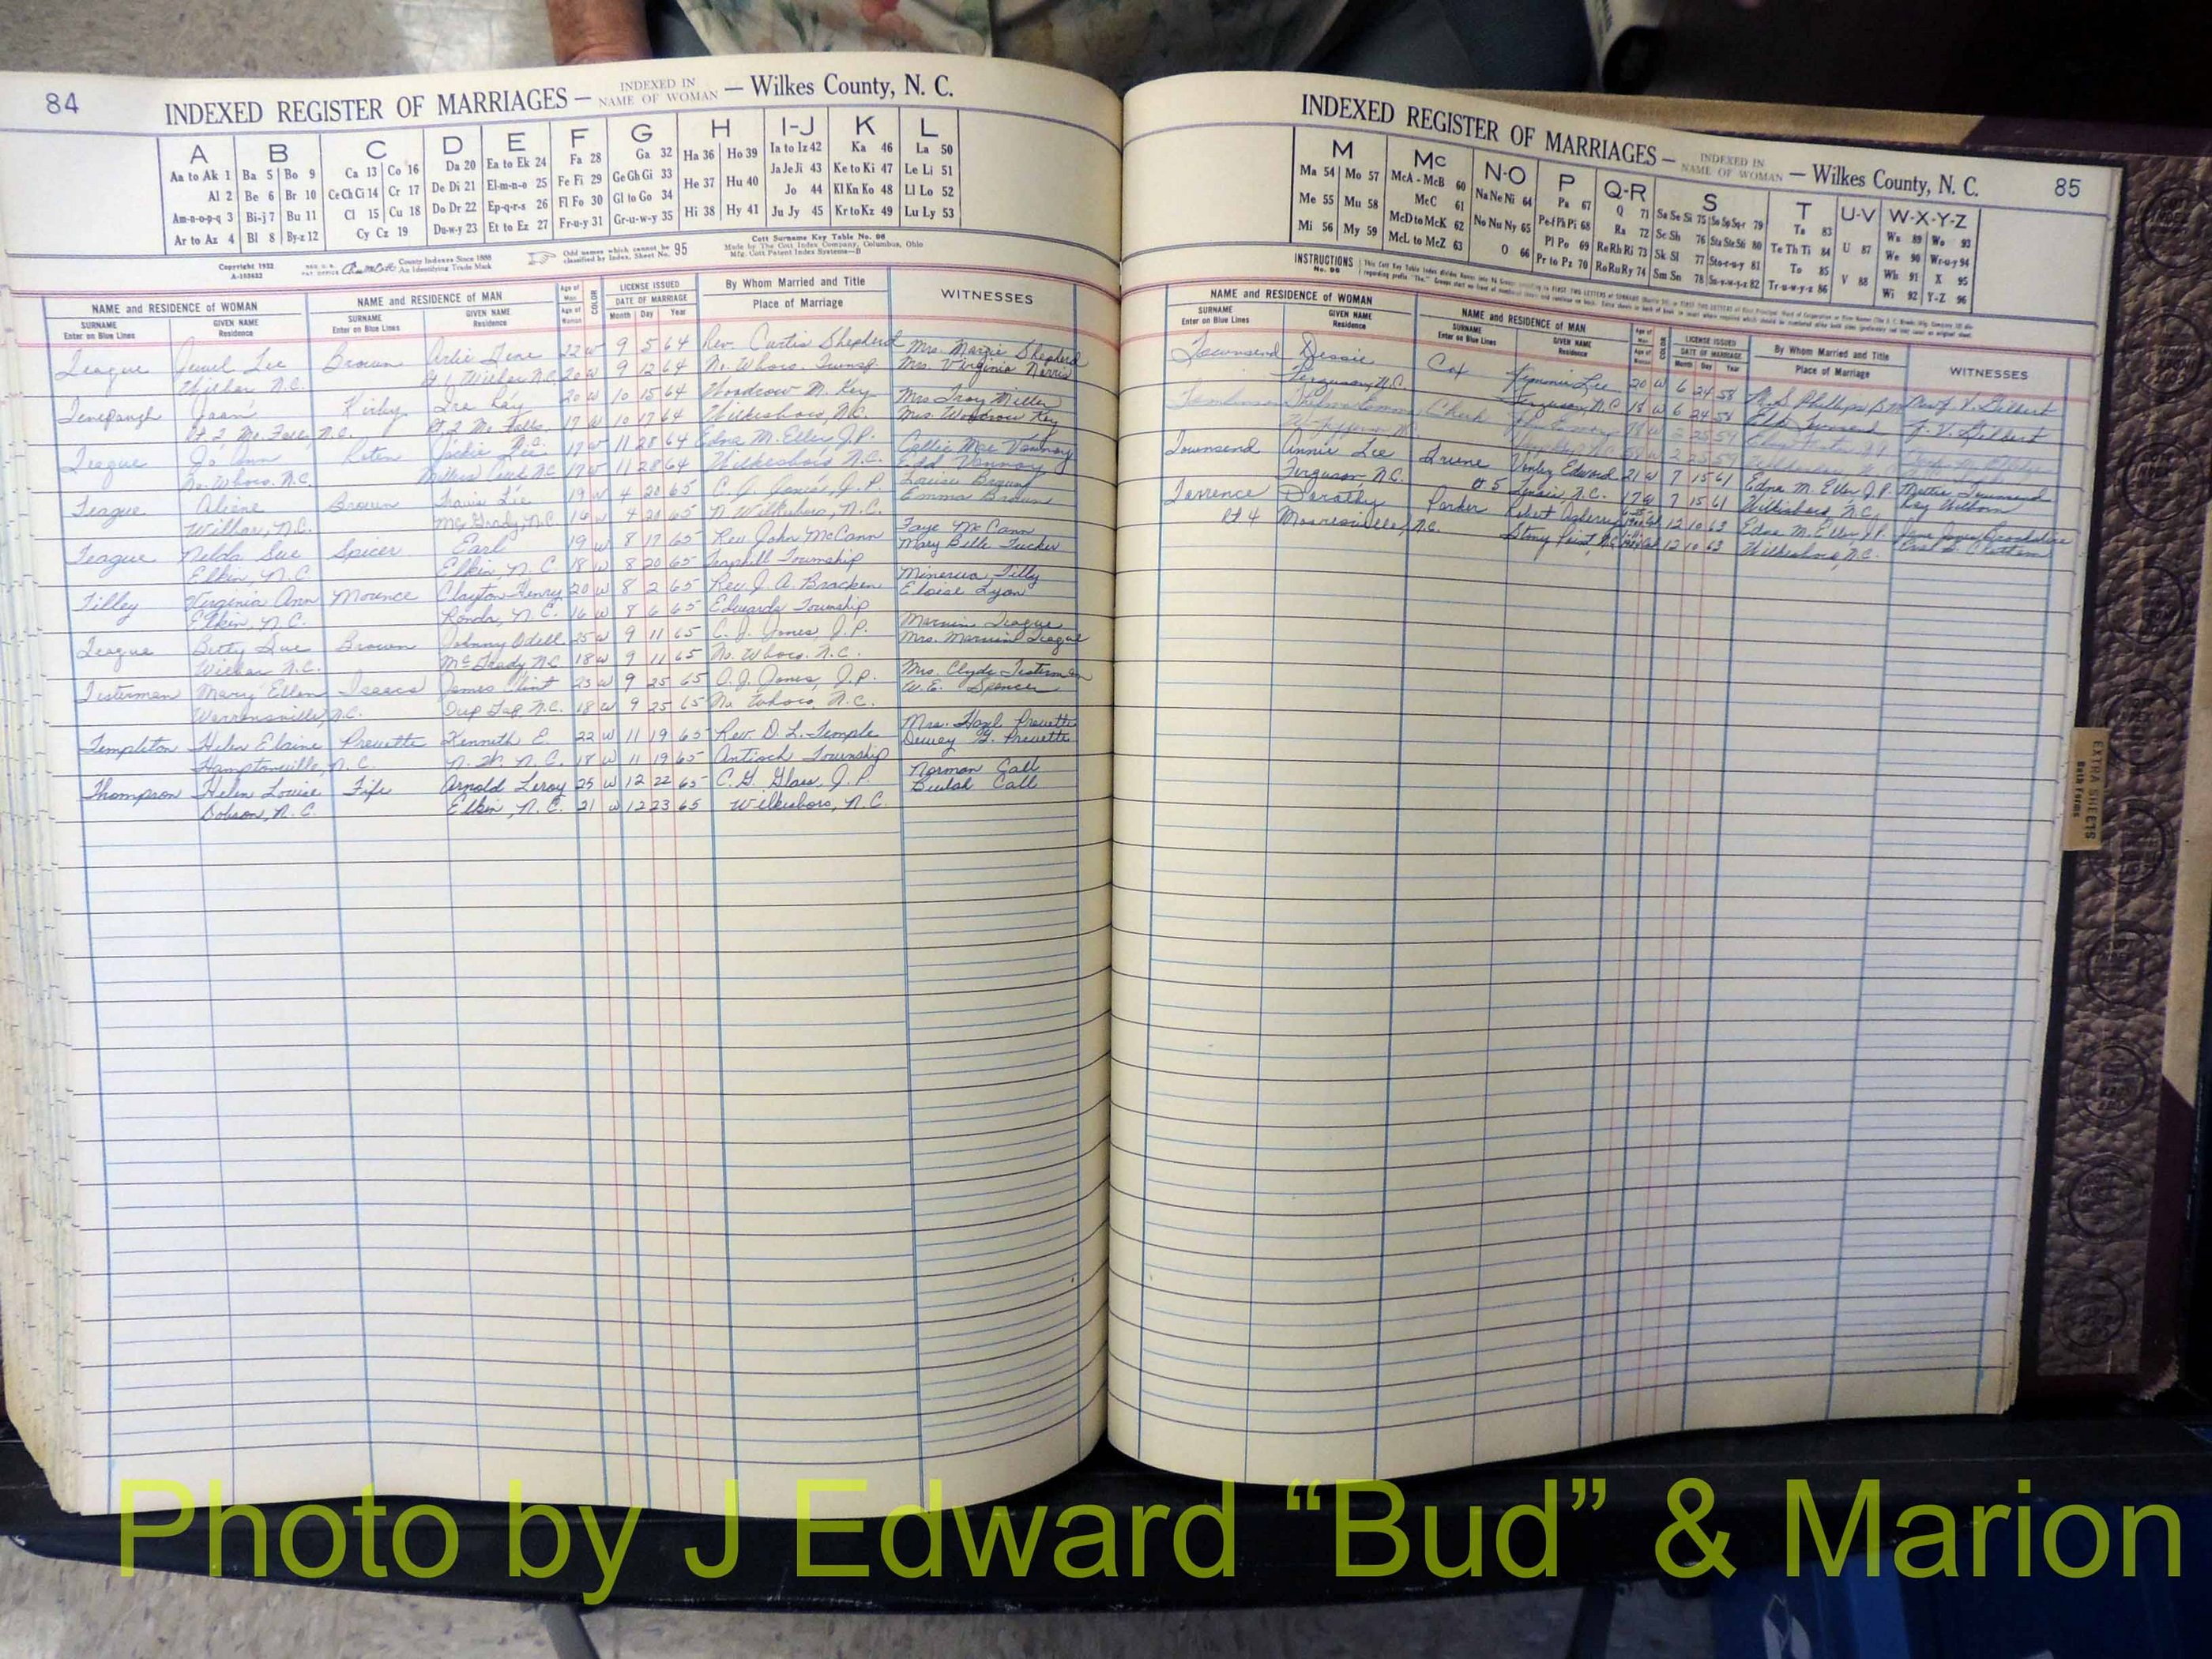 84
INDEXED REGISTER OF MARRIAGES — INDEXED IN NAME OF WOMAN — Wilkes County, N. C.
A B C D E F G H I-J K L
Aa to Ak 1 Ba 5 Bo 9 Ca 13 Co 16 Da 20 Ea to Ek 24 Fa 28 Ga 32 Ha 36 Ho 39 Ia to Iz 42 Ka 46 La 50
Al 2 Be 6 Br 10 Ce Ch Ci 14 Cr 17 De Di 21 El-m-n-o 25 Fe Fi 29 Ge Gh Gi 33 He 37 Hu 40 Ja Je Ji 43 Ke to Ki 47 Le Li 51
Am-n-o-p-q 3 Bi-j 7 Bu 11 Cl 15 Cu 18 Do Dr 22 Ep-q-r-s 26 Fl Fo 30 Gl to Go 34 Hi 38 Hy 41 Jo 44 Kl Kn Ko 48 Ll Lo 52
Ar to Az 4 Bl 8 By-z 12 Cy Cz 19 Du-w-y 23 Et to Ez 27 Fr-u-y 31 Gr-u-w-y 35 Ju Jy 45 Kr to Kz 49 Lu Ly 53
Copyright 1932
A-103632
County Indexes Since 1888
An Identifying Trade Mark
Odd names which cannot be classified by Index, Sheet No. 95
Cott Surname Key Table No. 96
Made by The Cott Index Company, Columbus, Ohio
Mfg. Cott Patent Index Systems—B
NAME and RESIDENCE OF WOMAN NAME and RESIDENCE OF MAN Age of Man Age of Woman COLOR LICENSE ISSUED DATE OF MARRIAGE By Whom Married and Title WITNESSES
SURNAME Enter on Blue Lines GIVEN NAME Residence SURNAME Enter on Blue Lines GIVEN NAME Residence Month Day Year Place of Marriage
League Jewel Lee Brown Arlie Gene 22 W 9 5 64 Rev. Curtis Shepherd Mrs. Margie Shepherd
Wilbar N.C. Rt 1, Wilbar N.C. 20 W 9 12 64 No. Wboro. Townsp. Mrs. Virginia Norris
Joan Kirby Ira Ray 20 W 10 15 64 Woodrow M. Key Mrs Troy Miller
Rt. 2 Mo. Falls, N.C. Rt 2 Mo. Falls, 17 W 10 17 64 Wilkesboro, N.C. Mrs. Woodrow Key
Teague Jo Ann Roten Jackie Lee 19 W 11 28 64 Edna M. Eller J.P. Callie Mae Vannoy
No. Wboro. N.C. Millers Creek N.C. 17 W 11 28 64 Wilkesboro N.C. Edd Vannoy
Teague Alene Brown Travis Lee 19 W 4 20 65 C. J. Jones, J.P. Louise Brown
Wilbar, N.C. McGrady, N.C. 16 W 4 20 65 N. Wilkesboro, N.C. Emma Brown
Teague Nelda Sue Spicer Earl 19 W 8 17 65 Rev. John McCann Faye McCann
Elkin, N.C. Elkin, N.C. 18 W 8 20 65 Traphill Township Mary Belle Tucker
Tilley Virginia Ann Morence Clayton Henry 20 W 8 2 65 Rev. J. A. Bracken Minerva Tilly
Elkin, N.C. Ronda, N.C. 16 W 8 6 65 Edwards Township Eloise Lyon
Teague Betty Sue Brown Johnny Odell 25 W 9 11 65 C. J. Jones, J.P. Marvin Teague
Wilbar N.C. McGrady N.C. 18 W 9 11 65 No. Wboro. N.C. Mrs. Marvin Teague
Testerman Mary Ellen Isaacs James Clint 23 W 9 25 65 C. J. Jones, J.P. Mrs. Clyde Testerman
Warrensville, N.C. Deep Gap N.C. 18 W 9 25 65 No. Wboro, N.C. W. E. Spencer
Templeton Helen Elaine Prevette Kenneth E. 22 W 11 19 65 Rev. D. L. Temple Mrs. Hazel Prevette
Hamptonville, N.C. N. W. N.C. 18 W 11 19 65 Antioch Township Dewey G. Prevette
Thompson Helen Louise Fife Arnold Leroy 25 W 12 22 65 C. G. Glass, J.P. Norman Call
Dobson, N.C. Elkin, N.C. 21 W 12 23 65 Wilkesboro, N.C. Beulah Call
INDEXED REGISTER OF MARRIAGES — INDEXED IN NAME OF WOMAN — Wilkes County, N. C.
85
M Mc N-O P Q-R S T U-V W-X-Y-Z
Ma 54 Mo 57 McA - McB 60 Na Ne Ni 64 Pa 67 Q 71 Sa Se Si 75 So Sp Sq-r 79 Ta 83 U 87 Wa 89 Wo 93
Me 55 Mu 58 McC 61 No Nu Ny 65 Pe-f Ph Pi 68 Ra 72 Sc Sh 76 Sta Ste Sti 80 Te Th Ti 84 V 88 We 90 Wr-u-y 94
Mi 56 My 59 McD to McK 62 O 66 Pl Po 69 Re Rh Ri 73 Sk Sl 77 Sto-r-u-y 81 To 85 Wh 91 X 95
McL to McZ 63 Pr to Pz 70 Ro Ru Ry 74 Sm Sn 78 Su-v-w-y-z 82 Tr-u-w-y-z 86 Wi 92 Y-Z 96
INSTRUCTIONS
No. 96
NAME and RESIDENCE OF WOMAN NAME and RESIDENCE OF MAN Age of Man Age of Woman COLOR LICENSE ISSUED DATE OF MARRIAGE By Whom Married and Title WITNESSES
SURNAME Enter on Blue Lines GIVEN NAME Residence SURNAME Enter on Blue Lines GIVEN NAME Residence Month Day Year Place of Marriage
Townsend Dessie Cox Kimmie Lee 20 W 6 24 58 Phillips
Ferguson, N.C. Ferguson, N.C. 18 W 6 24 58 Elk Township J. V. Gilbert
W. Jefferson N.C. 2 25 59
Townsend Annie Lee Greene Vonley Edward 21 W 7 15 61 Edna M. Eller J.P. Mattie Townsend
Ferguson, N.C. Rt 5 Lenoir, N.C. 17 W 7 15 61 Wilkesboro, N.C. Ray Wilborn
Torrence Dorothy Parker Robert 12 10 63 Edna M. Eller J.P.
Rt 4 Mooresville, N.C. Stony Point, N.C. 12 10 63 Wilkesboro, N.C.
EXTRA SHEETS
Both Forms
Photo by J Edward “Bud” & Marion